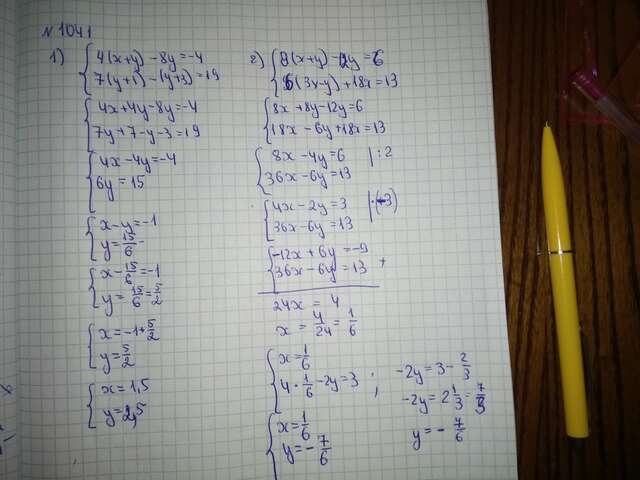 N 1041
1) { 4(x+y) - 8y = -4
7(y+1) - (y+3) = 19
{ 4x+4y-8y=-4
7y+7-y-3=19
{ 4x-4y=-4
6y=15
{ x-y=-1
y=15/6
{ x-15/6=-1
y=15/6=5/2
{ x=-1+5/2
y=5/2
{ x=1,5
y=2,5
2) { 8(x+y) - 12y = 6
6(3x-y)+18x=13
{ 8x+8y-12y=6
18x-6y+18x=13
{ 8x-4y=6 |:2
36x-6y=13
{ 4x-2y=3 |·(-3)
36x-6y=13
{ -12x+6y=-9
36x-6y=13 +
24x=4
x=4/24=1/6
{ x=1/6
4·1/6-2y=3 ;
{ x=1/6
y=-7/6
-2y=3-2/3
-2y=2 1/3=7/3
y=-7/6